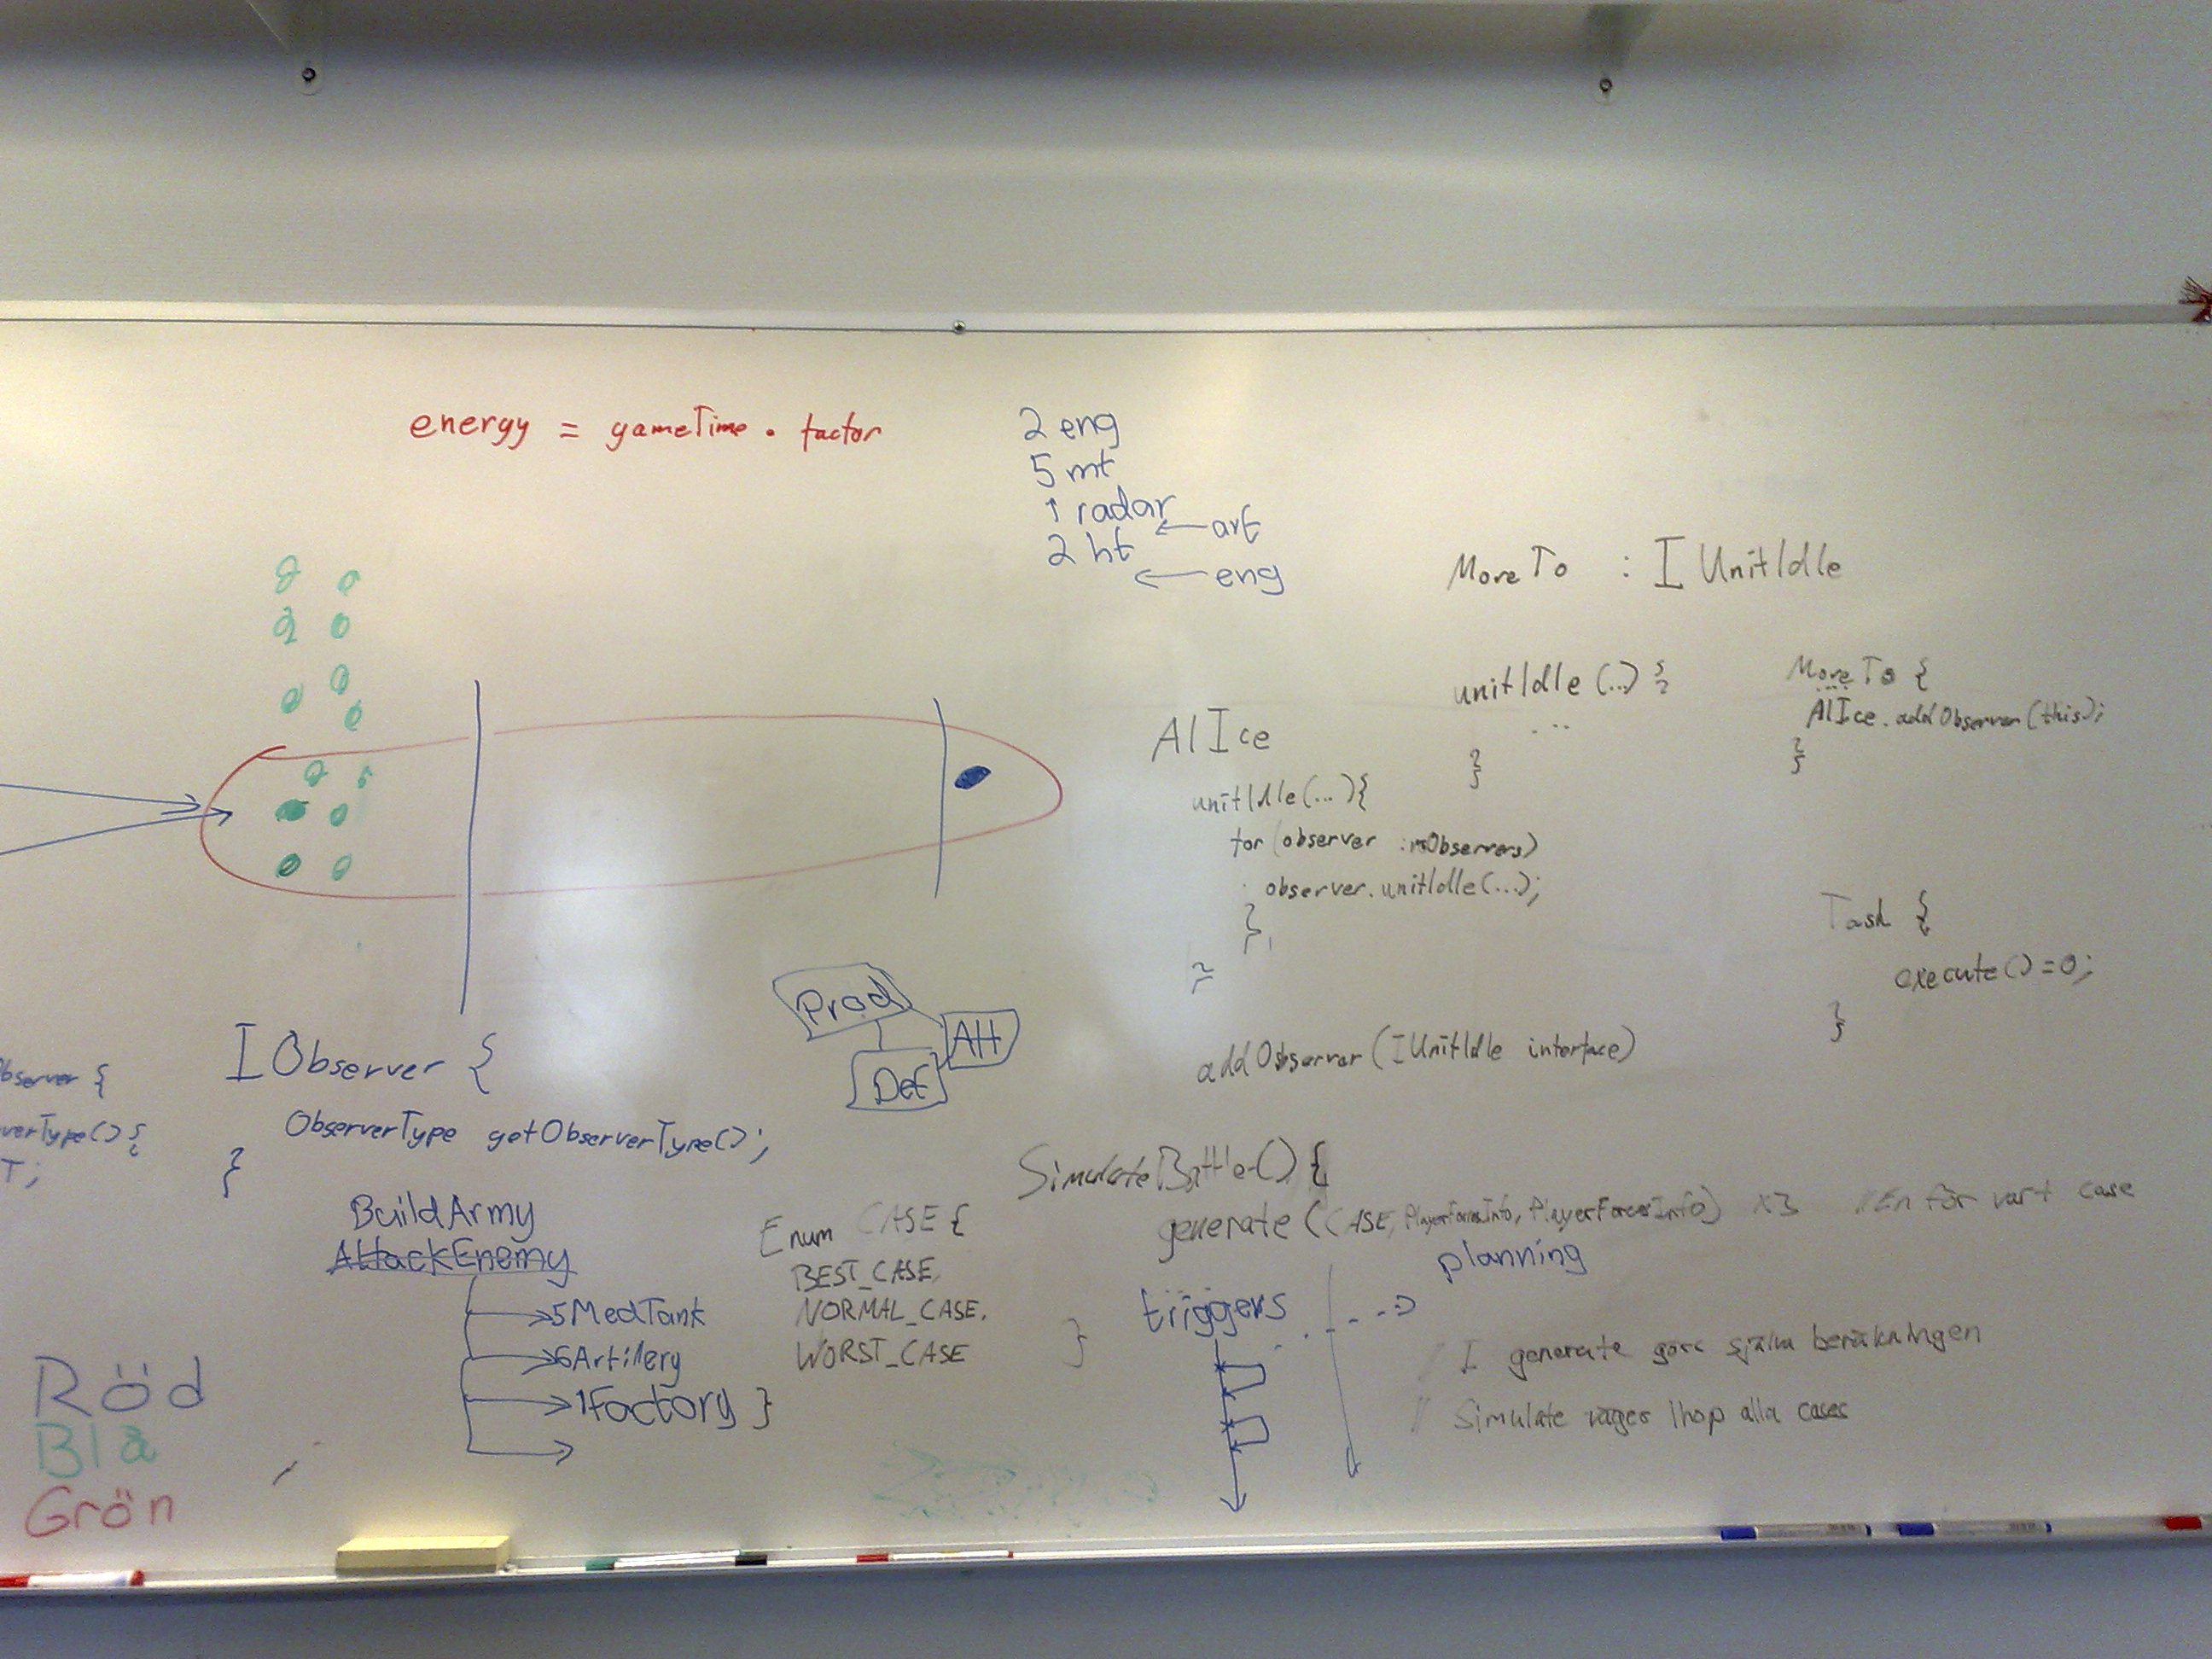 energy = gameTime · factor
2 eng
5 mt
1 radar
← art
2 ht
← eng
MoreTo : IUnitIdle
unitIdle (...) {
...
}
MoreTo {
...
AIIce.addObserver(this);
}
AIIce
unitIdle(...){
for (observer : mObservers)
observer.unitIdle(...);
}
addObserver (IUnitIdle interface)
Task {
execute() = 0;
}
Prod
Att
Def
bserver {
verType() {
T;
IObserver {
ObserverType getObserverType();
}
BuildArmy
AttackEnemy
5MedTank
6Artillery
1Factory }
Enum CASE {
BEST_CASE,
NORMAL_CASE,
WORST_CASE
}
SimulateBattle() {
generate (CASE, PlayerForcesInfo, PlayerForcesInfo) x3 //En för vart case
planning
triggers
// I generate görs själva beräkningen
// Simulate väger ihop alla cases
Röd
Blå
Grön